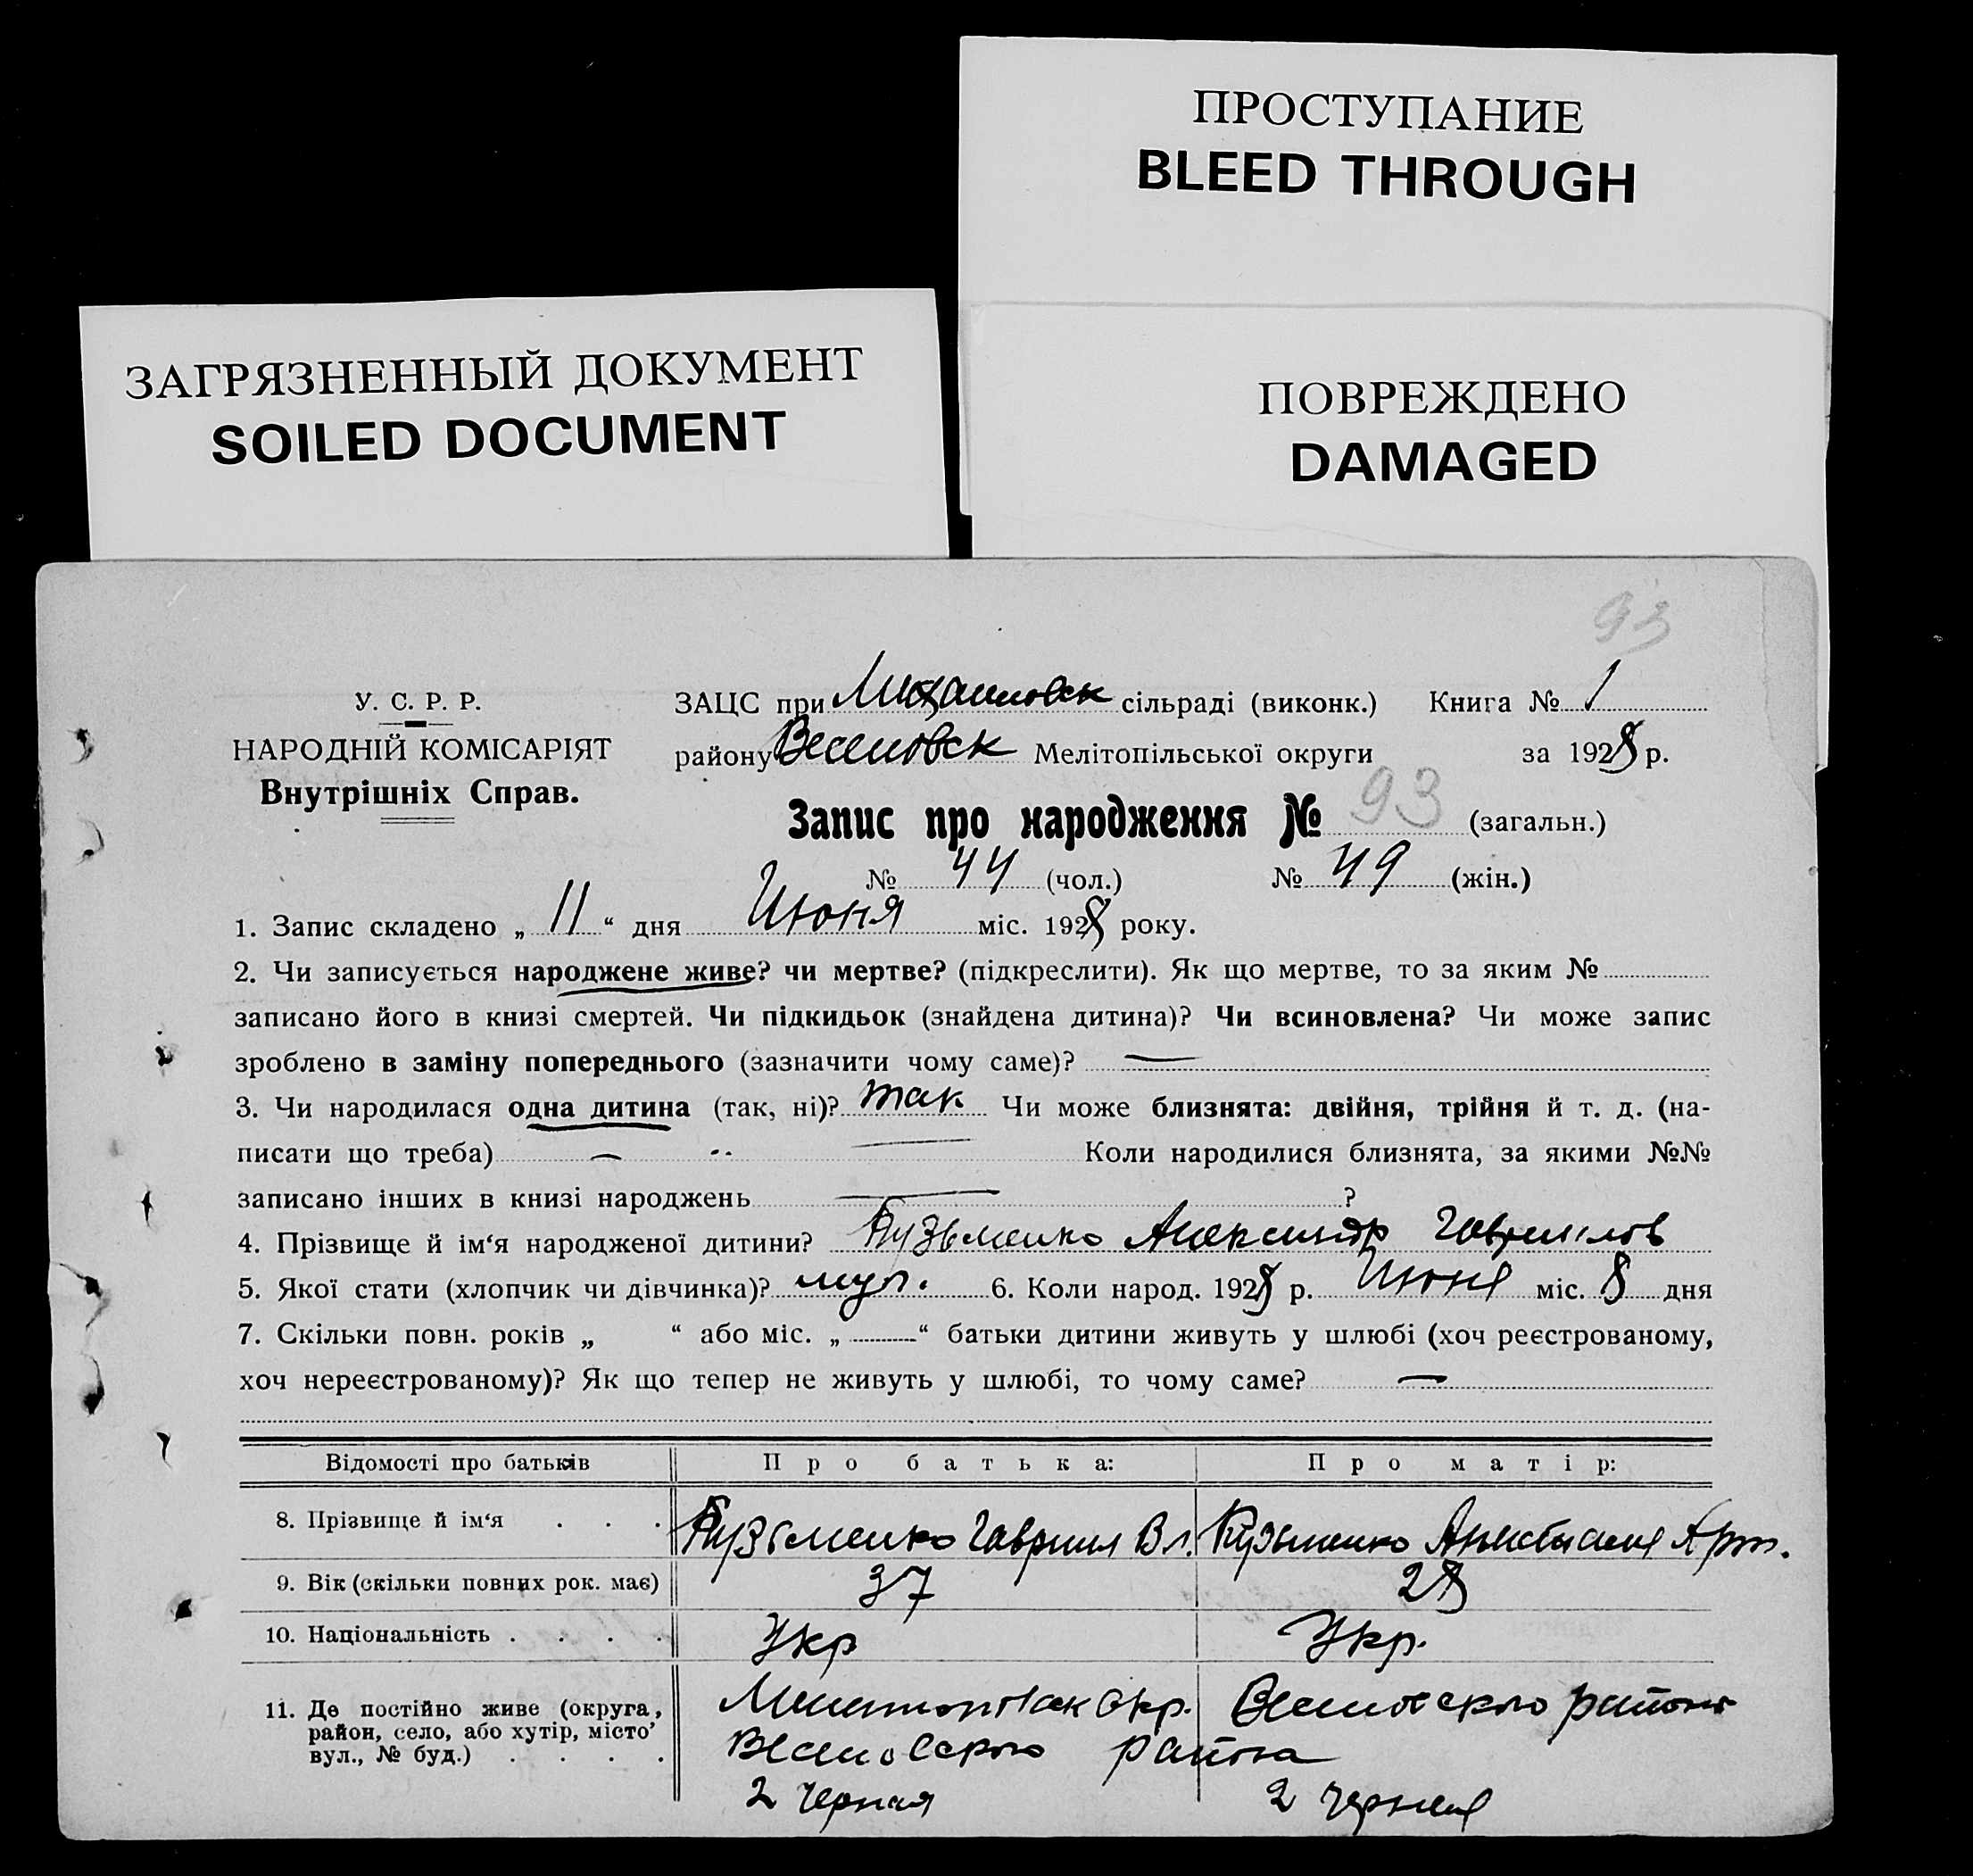 ПРОСТУПАНИЕ
BLEED THROUGH
ЗАГРЯЗНЕННЫЙ ДОКУМЕНТ
SOILED DOCUMENT
ПОВРЕЖДЕНО
DAMAGED
93
У. С. Р. Р.
НАРОДНІЙ КОМІСАРІЯТ
Внутрішніх Справ.
ЗАЦС при Михайловск сільраді (виконк.) Книга № 1
району Веселовск Мелітопільської округи за 1928 р.
Запис про народження № 93 (загальн.)
№ 44 (чол.) № 49 (жін.)
1. Запис складено „ 11 “ дня Июня міс. 1928 року.
2. Чи записується народжене живе? чи мертве? (підкреслити). Як що мертве, то за яким №
записано його в книзі смертей. Чи підкидьок (знайдена дитина)? Чи всиновлена? Чи може запис
зроблено в заміну попереднього (зазначити чому саме)? —
3. Чи народилася одна дитина (так, ні)? так Чи може близнята: двійня, трійня й т. д. (на-
писати що треба) — Коли народилися близнята, за якими №№
записано інших в книзі народжень — ?
4. Прізвище й ім‘я народженої дитини? Кузьменко Александр Гаврилов
5. Якої стати (хлопчик чи дівчинка)? муж. 6. Коли народ. 1928 р. Июня міс. 8 дня
7. Скільки повн. років „ “ або міс. „ “ батьки дитини живуть у шлюбі (хоч реєстрованому,
хоч нереєстрованому)? Як що тепер не живуть у шлюбі, то чому саме? —
Відомості про батьків Про батька: Про матір:
8. Прізвище й ім‘я . . . Кузьменко Гавриил Вл. Кузьменко Анастасия Арт.
9. Вік (скільки повних рок. має) 37 28
10. Національність . . . . Укр Укр.
11. Де постійно живе (округа, район, село, або хутір, місто’ вул., № буд.) . . . .
Мелитопольск Окр. Веселовского района
Веселовского района
2 Черная 2 Черная